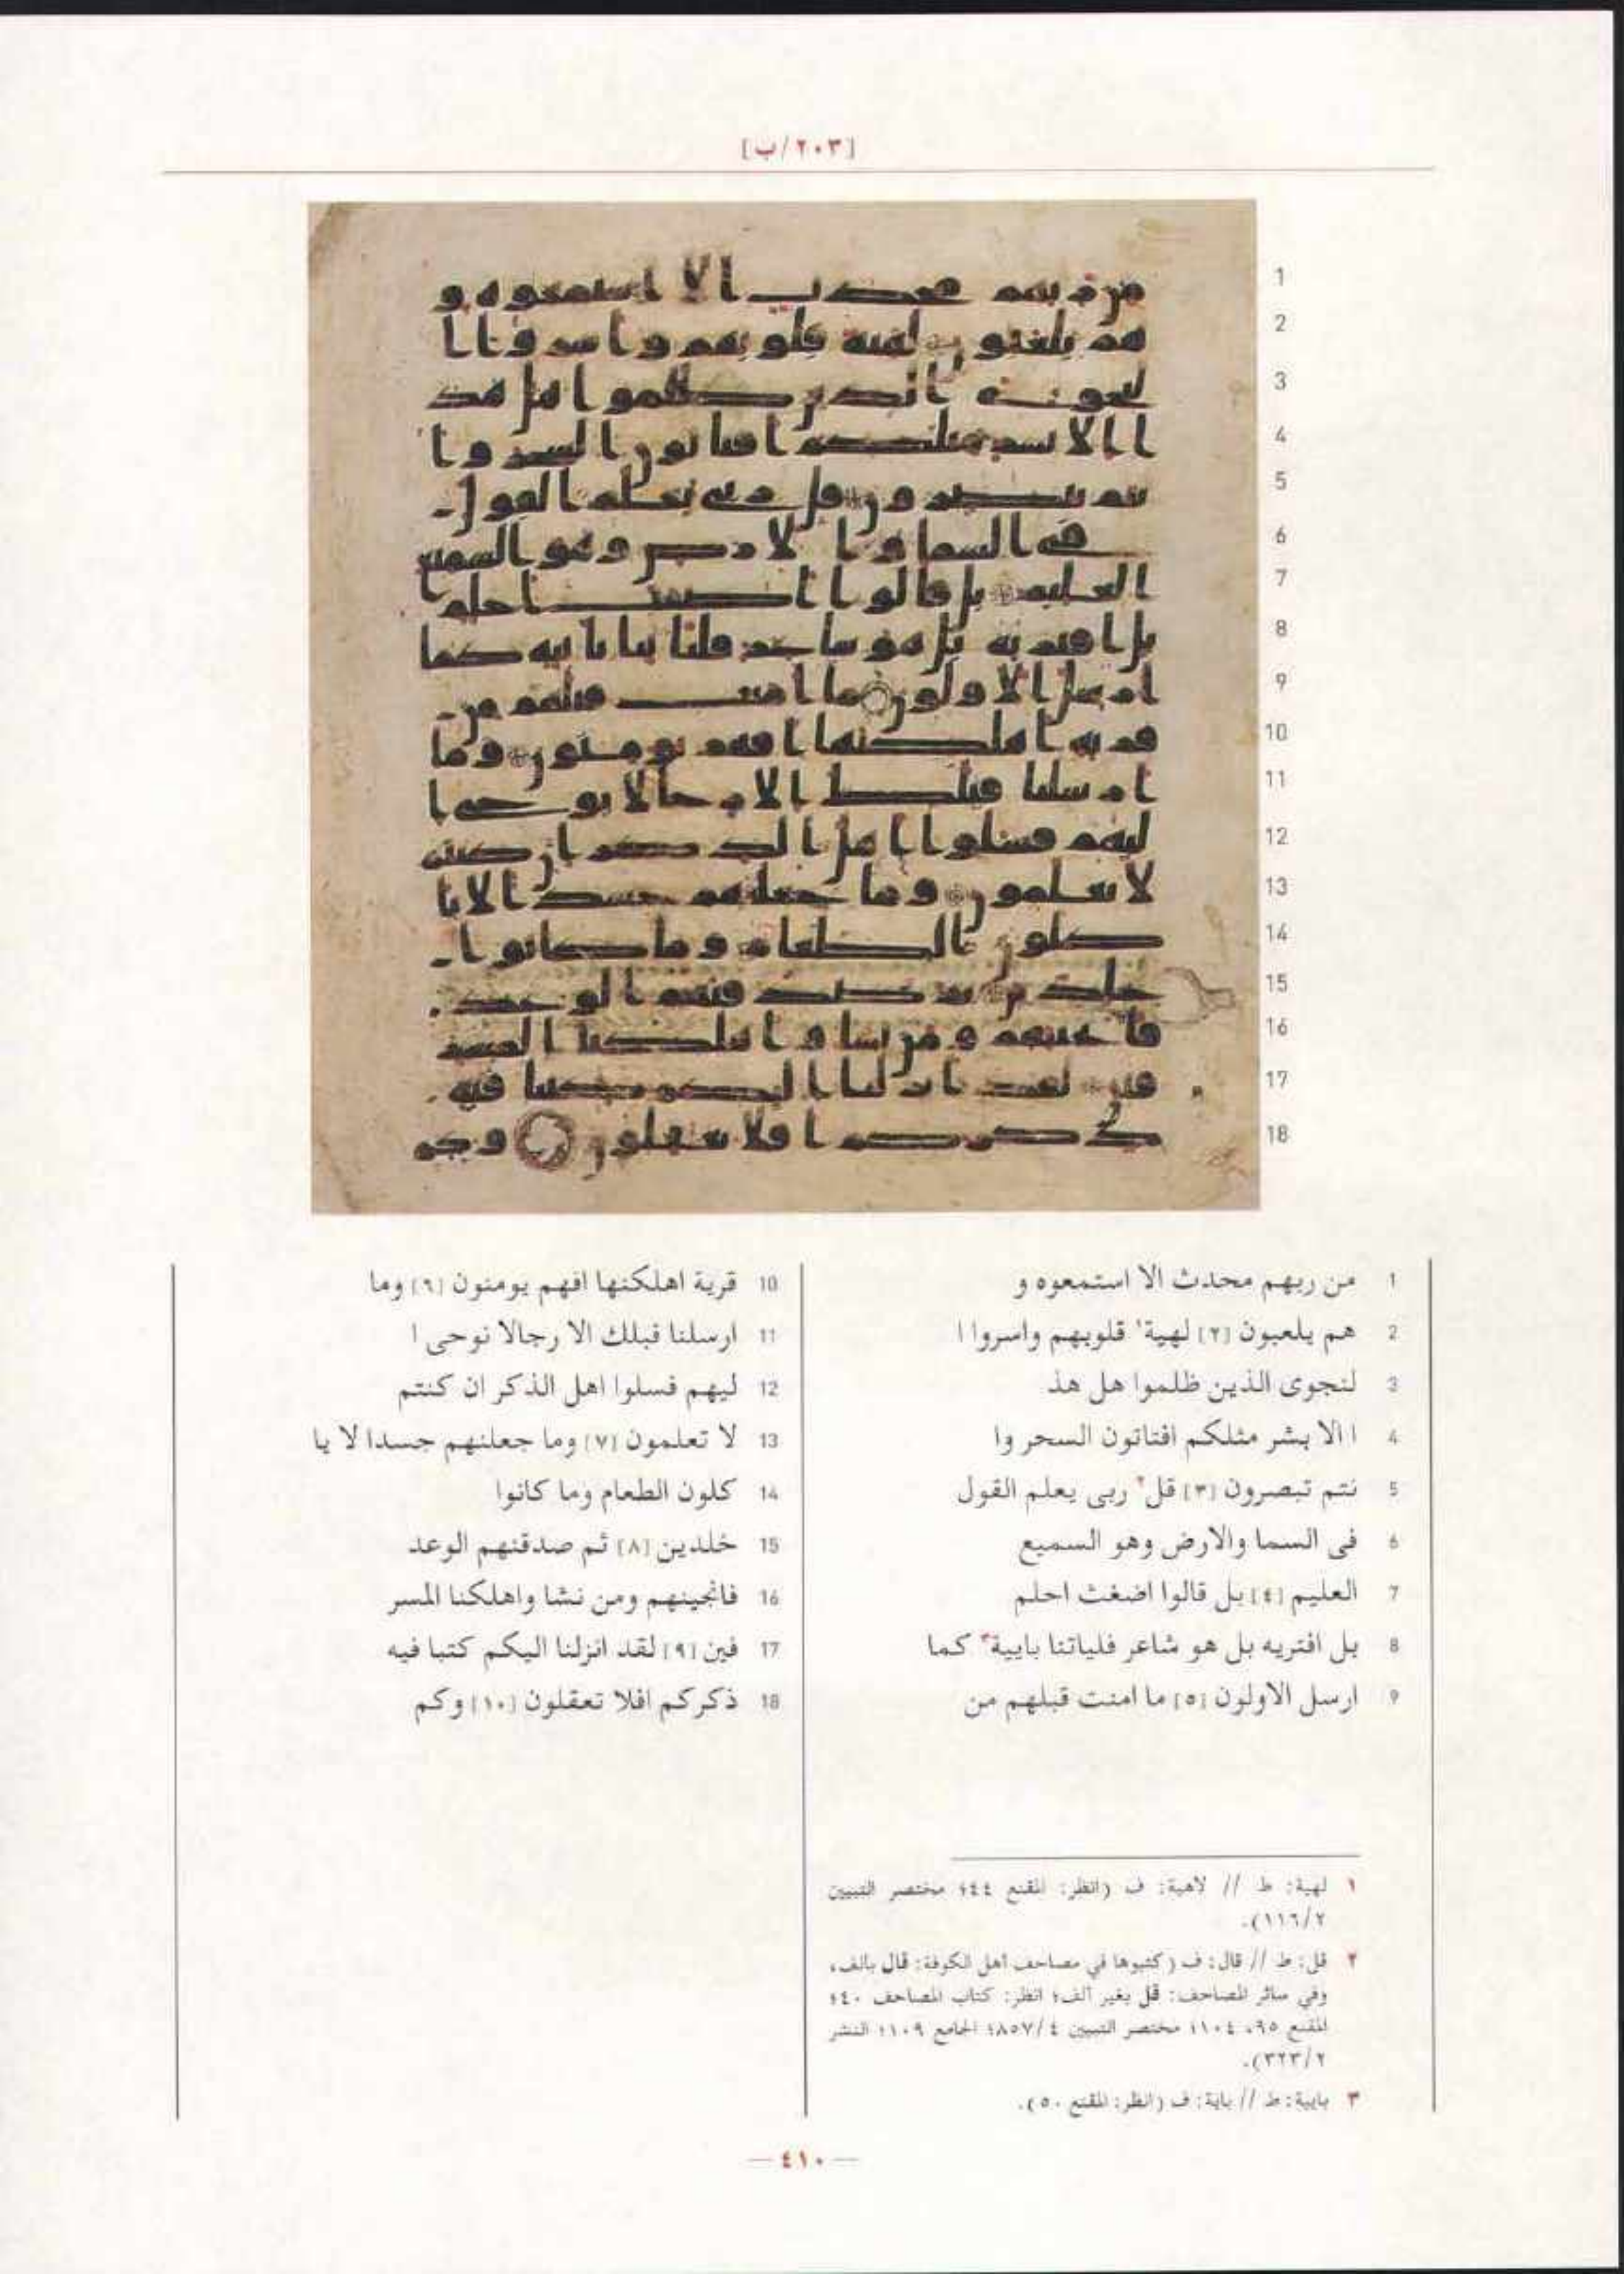 [٢٠٣/ب]
1 من ربهم محدث الا استمعوه و
2 هم يلعبون [٢] لهية١ قلوبهم واسروا ا
3 لنجوى الذين ظلموا هل هذ
4 ا الا بشر مثلكم افتاتون السحر وا
5 نتم تبصرون [٣] قل٢ ربى يعلم القول
6 فى السما والارض وهو السميع
7 العليم [٤] بل قالوا اضغث احلم
8 بل افتريه بل هو شاعر فلياتنا بايية٣ كما
9 ارسل الاولون [٥] ما امنت قبلهم من
10 قرية اهلكنها افهم يومنون [٦] وما
11 ارسلنا قبلك الا رجالا نوحى ا
12 ليهم فسلوا اهل الذكر ان كنتم
13 لا تعلمون [٧] وما جعلنهم جسدا لا يا
14 كلون الطعام وما كانوا
15 خلدين [٨] ثم صدقنهم الوعد
16 فانجينهم ومن نشا واهلكنا المسر
17 فين [٩] لقد انزلنا اليكم كتبا فيه
18 ذكركم افلا تعقلون [١٠] وكم
١ لهية: ط // لاهية: ف (انظر: المقنع ٤٤؛ مختصر التبيين
١١٦/٢).
٢ قل: ط // قال: ف (كتبوها في مصاحف أهل الكوفة: قال بألف،
وفي سائر المصاحف: قل بغير ألف؛ انظر: كتاب المصاحف ٤٠؛
المقنع ٩٥، ١٠٤؛ مختصر التبيين ٨٥٧/٤؛ الجامع ١٠٩؛ النشر
٣٢٣/٢).
٣ بايية: ط // باية: ف (انظر: المقنع ٥٠).
— ٤١٠ —